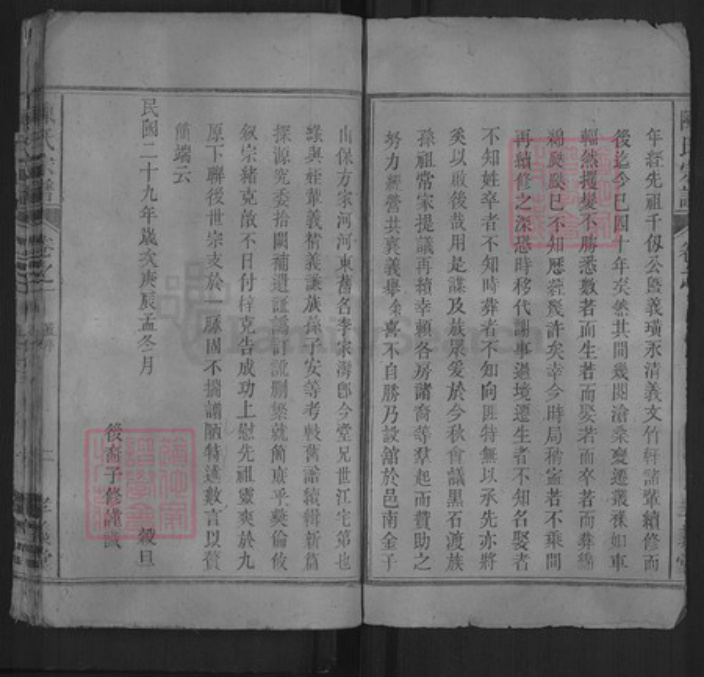 年經先祖千仭公暨義璜永清義文竹軒諸輩續修而
後迄今已四十年矣然其間幾閱滄桑變遷叢祿如車
輻然攪擾不勝悉數若而生若而娶若而卒若而葬綿
綿已不知歷經幾許矣幸今時局稍寗若不乘間
再續修之深恐時移代謝事過境遷生者不知名娶者
不知姓卒者不知時葬者不知向匪特無以承先亦將
矣以啟後哉用是謀及族眾爰於今秋會議黑石渡族
孫祖常家提議再續幸賴各房諸裔等羣起而贊助之
努力經營共襄義舉余喜不自勝乃設舘於邑南金子
山保方家河河東舊名李家灣卽今堂兄世江宅第也
錄與姪輩義楷義謙族孫子安等考較舊譜續輯新篇
探源究委拾闕補遺証譌訂訛刪繁就簡庶乎彝倫攸
敘宗緒克啟不日付梓克告成功上慰先祖靈爽於九
原下聯後世宗支於一脈因不揣譾陋特述數言以贅
簡端云
民國二十九年歲次庚辰孟冬月
穀旦
後裔子修謹識
陳氏宗譜
卷之